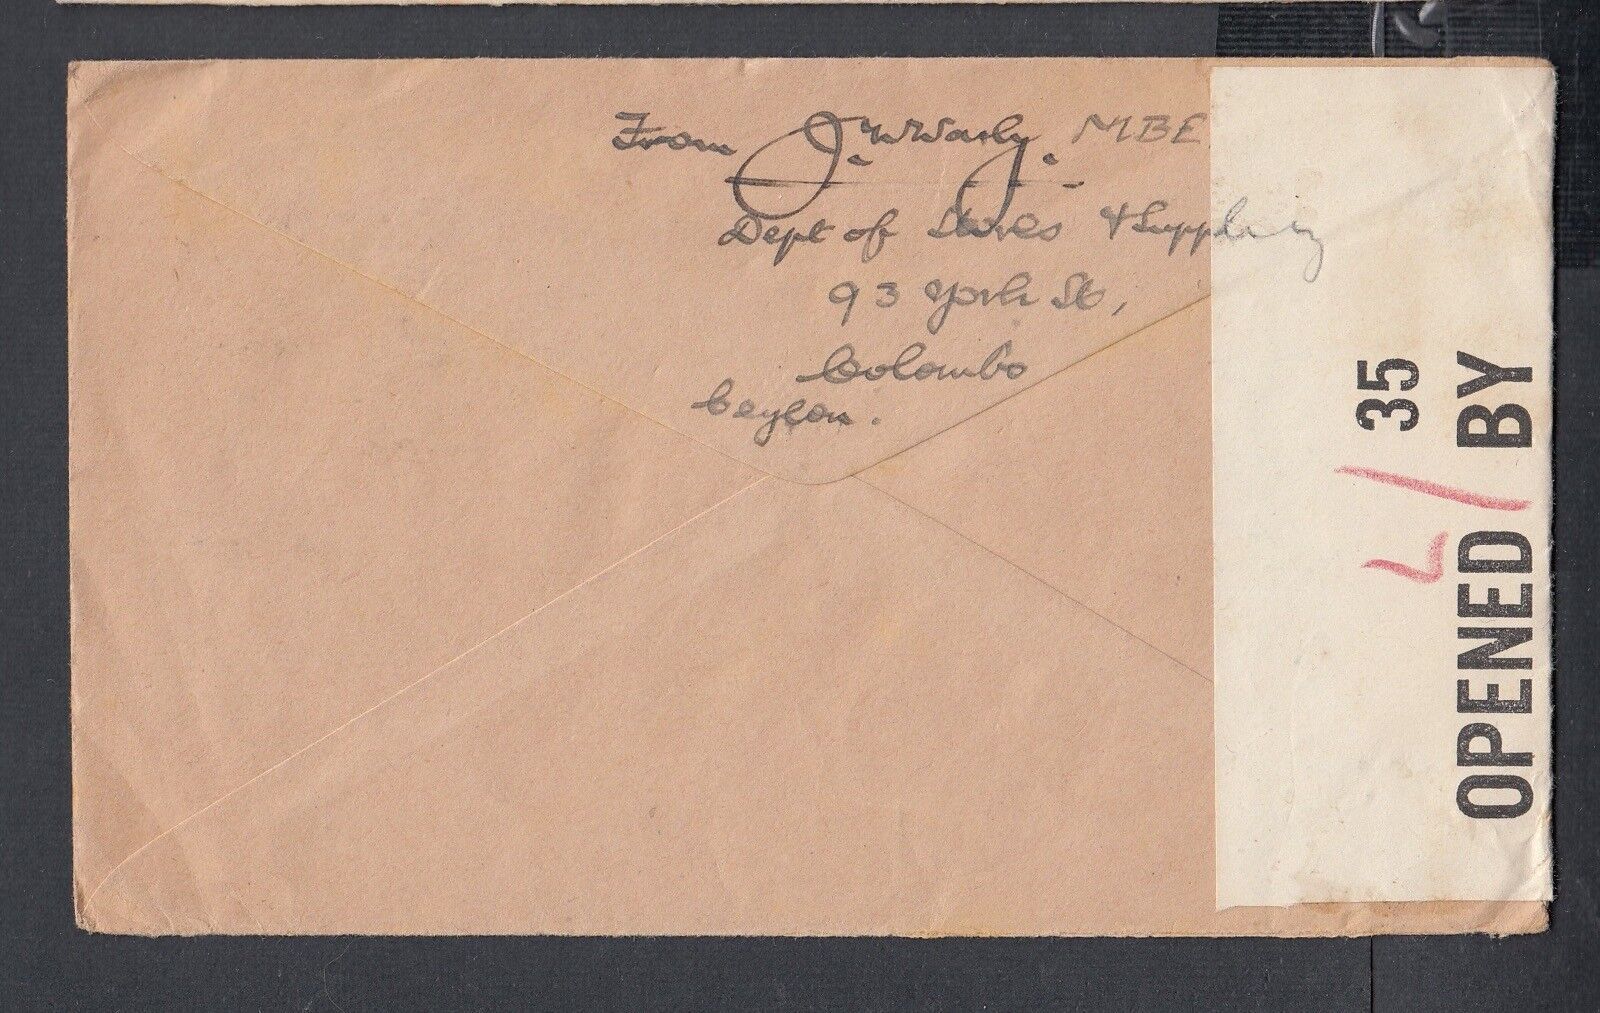 From J. W. Early. MBE
Dept of Stores & Supply
93 York St,
Colombo
Ceylon.
35
OPENED / BY